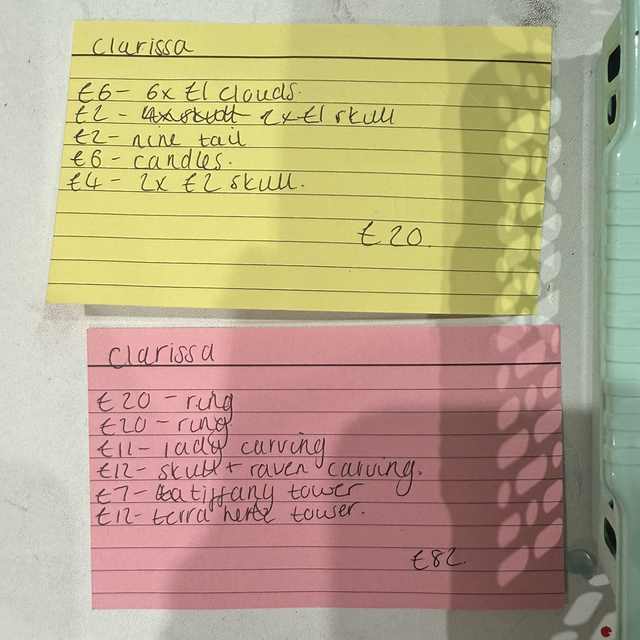 Clarissa
£6 - 6x £1 clouds.
£2 - 2x £1 skull
£2 - nine tail
£6 - candles.
£4 - 2x £2 skull.
£20.
Clarissa
£20 - ring
£20 - ring
£11 - lady carving
£12 - skull + raven carving.
£7 - tiffany tower
£12 - terra hertz tower.
£82.